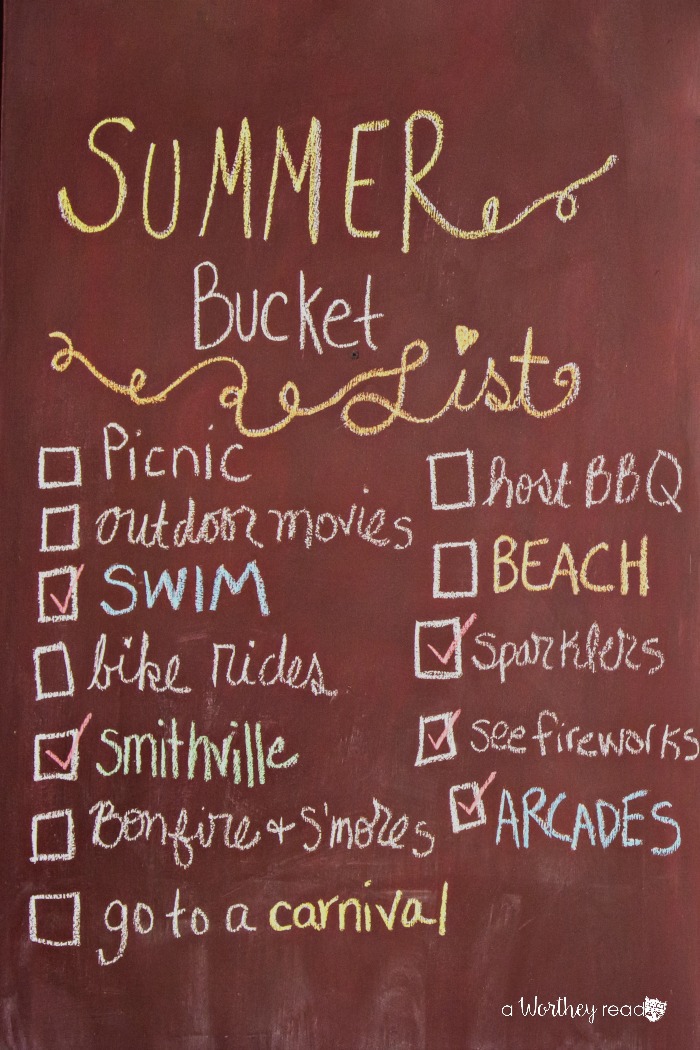 SUMMER
Bucket
List
Picnic
outdoor movies
SWIM
bike rides
smithville
Bonfire + S'mores
go to a carnival
host BBQ
BEACH
sparklers
see fireworks
ARCADES
a Worthey read